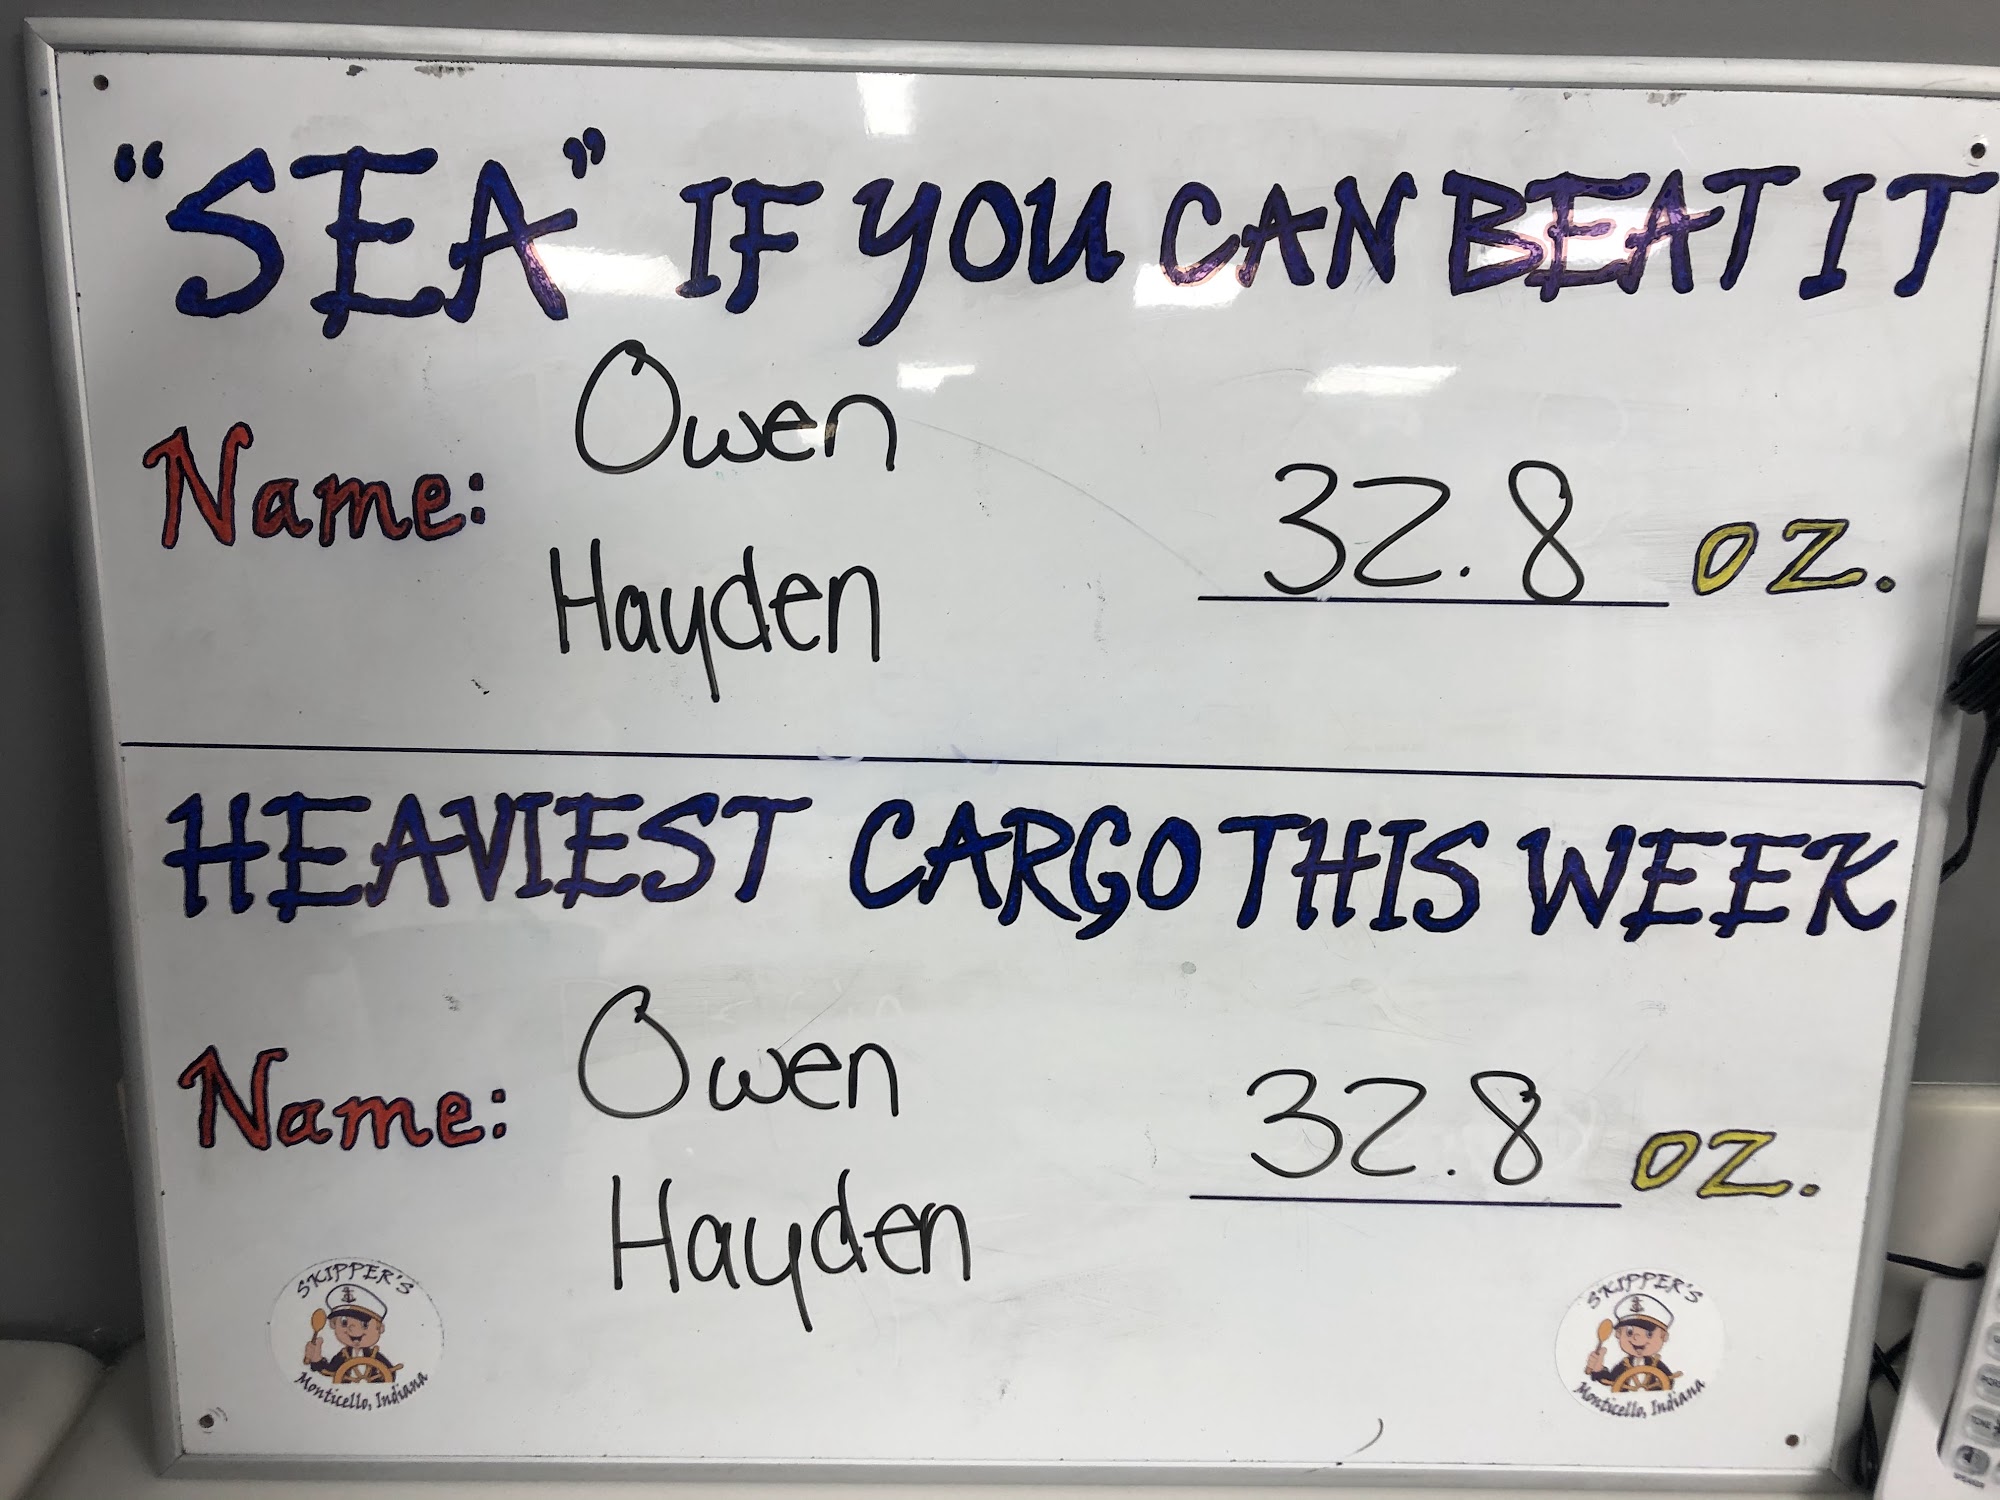 "SEA" IF YOU CAN BEAT IT
Name: Owen
Hayden
32.8 oz.
HEAVIEST CARGO THIS WEEK
Name: Owen
Hayden
32.8 oz.
SKIPPER'S
Monticello, Indiana
SKIPPER'S
Monticello, Indiana